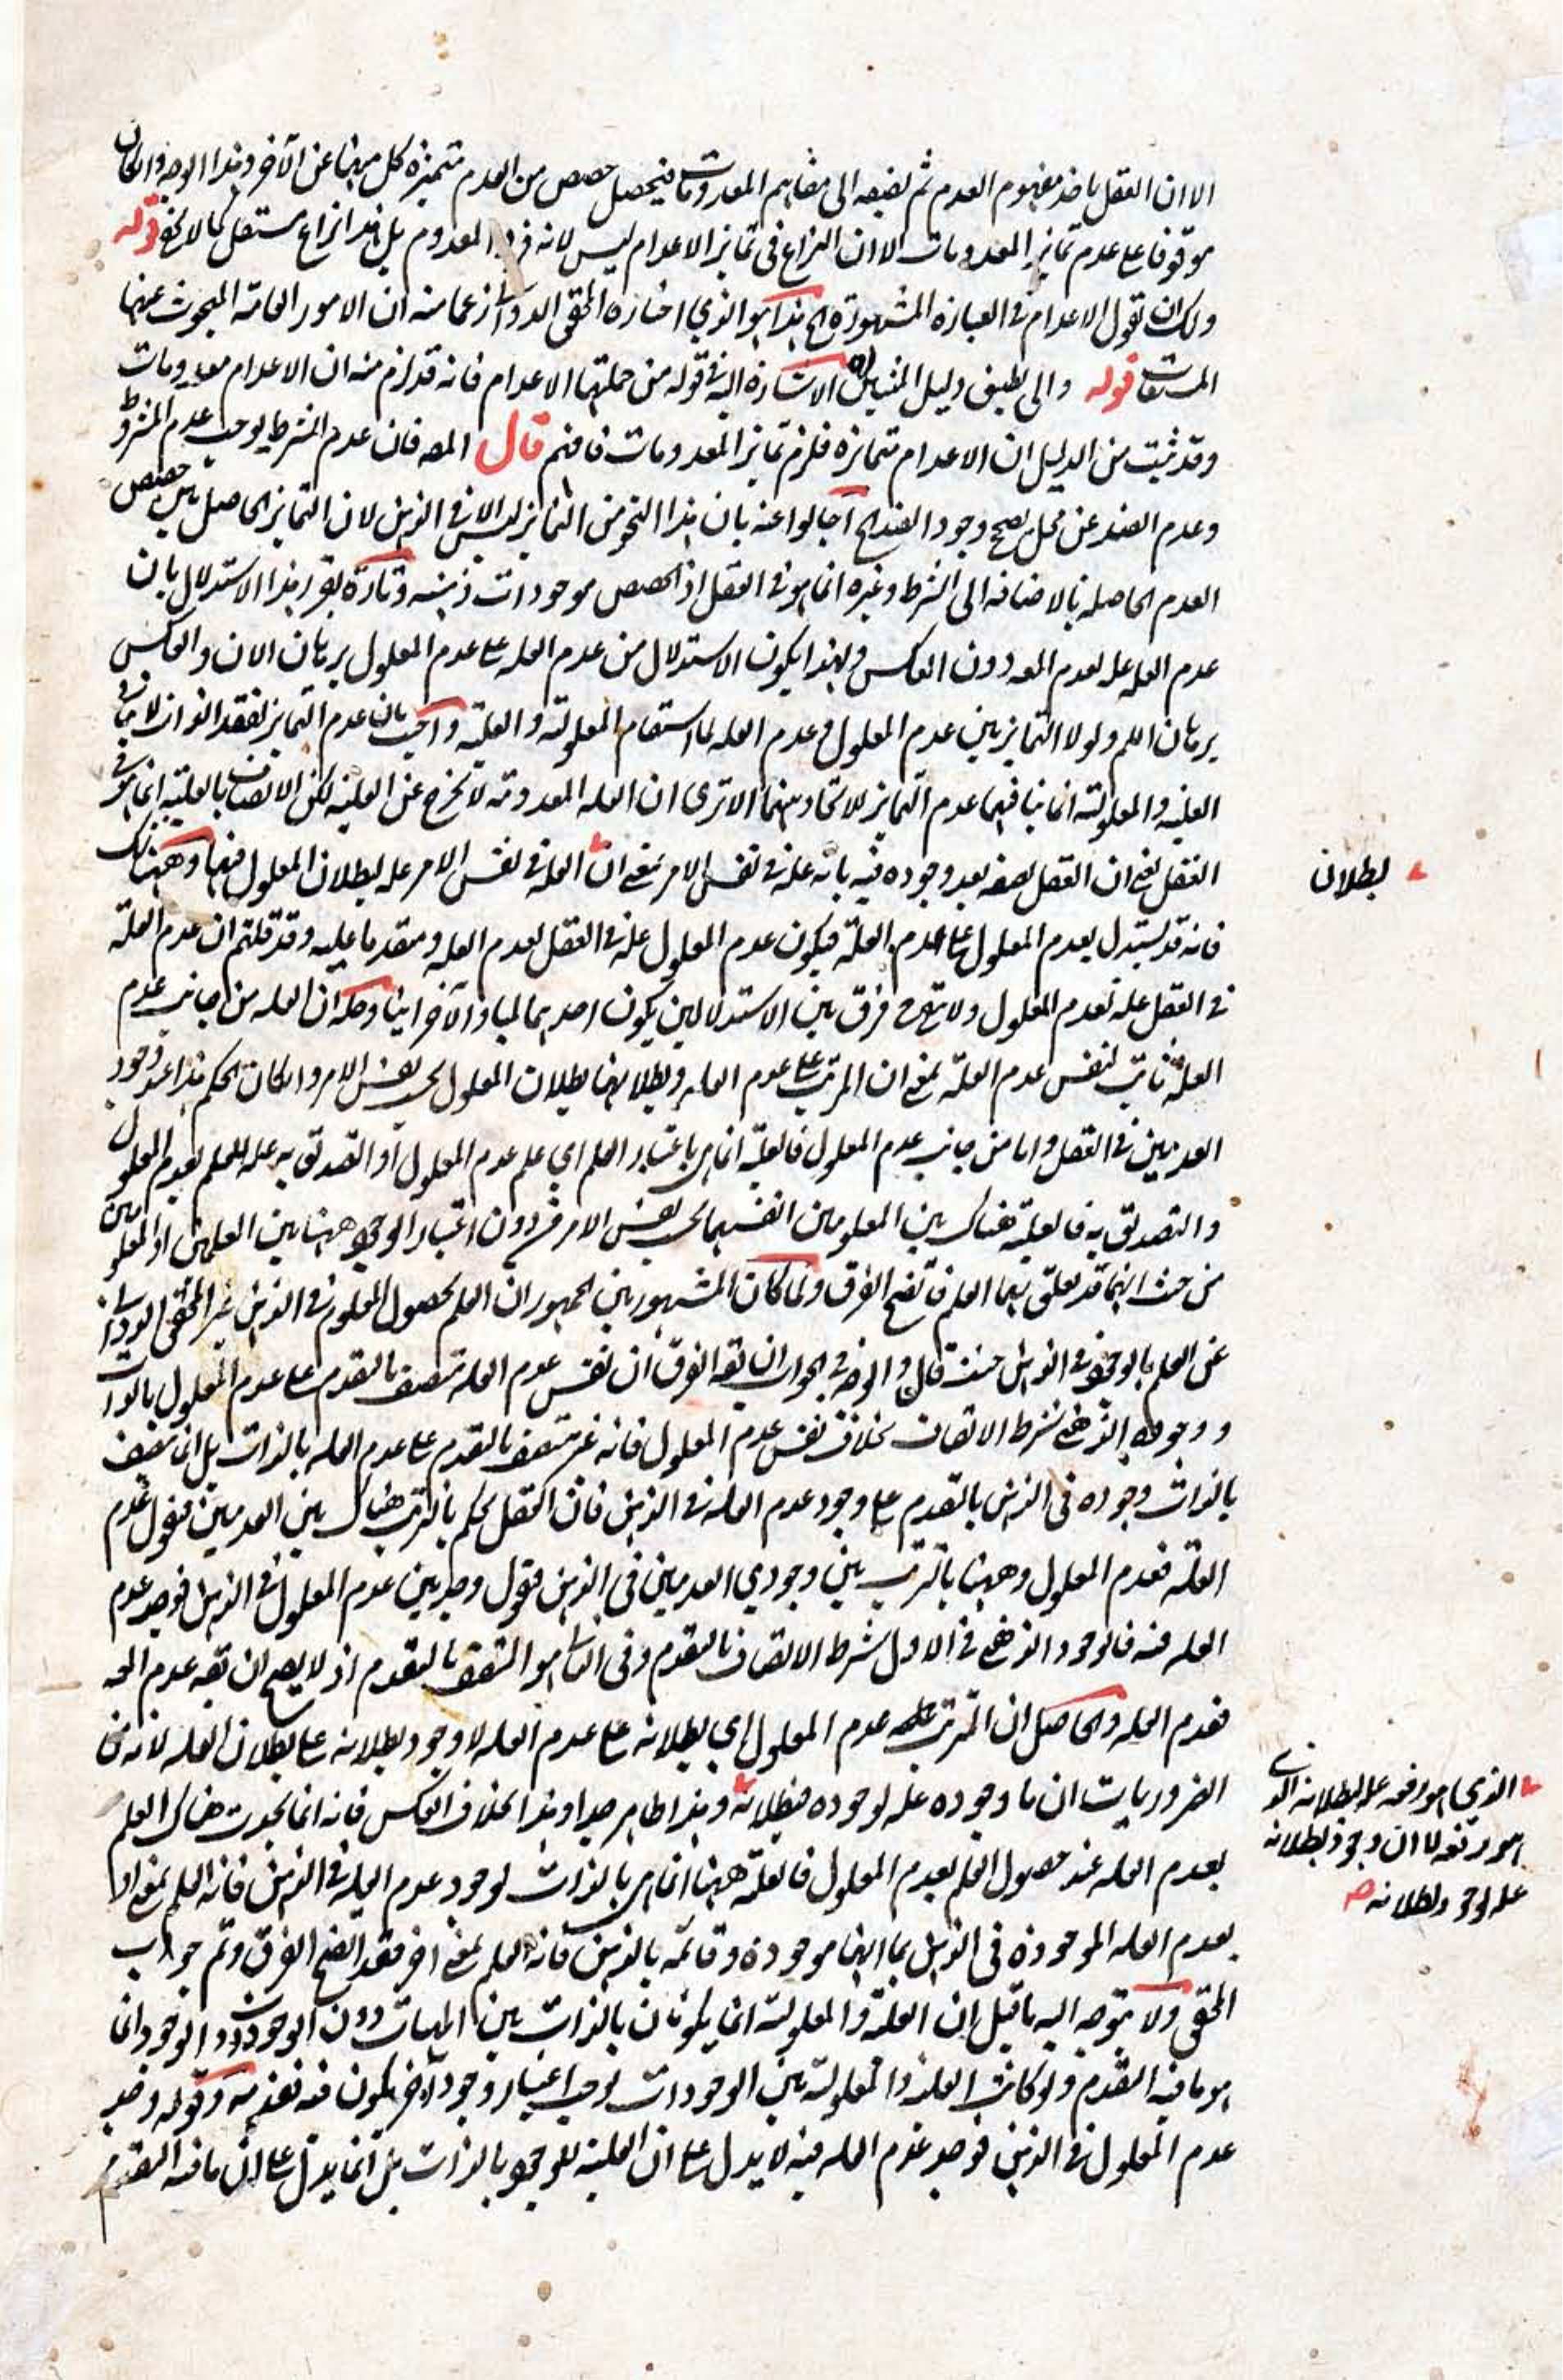 الا ان العقل ياخذ مفهوم العدم ثم يضيفه الى مفاهيم المعدومات فيحصل حصص من العدم متميزة كل منها عن الآخر وهذا الوجه وان كان
موقوفا على عدم تمايز المعدومات الا ان النزاع فى تمايز الاعدام ليس لانه فرد المعدوم بل هذا نزاع مستقل كما لا يخفى قوله
ولك ان تقول الاعدام فى العبارة المشهورة الخ هذا هو الذي اختاره المحقق الدوانى زعما منه ان الامور العامة المبحوث عنها
المشتقات قوله والى تطبيق دليل المثبتين الاشارة اليه فى قوله من جملتها الاعدام فانه قد لزم منه ان الاعدام معدومات
وقد ثبت من الدليل ان الاعدام متمايزة فلزم تمايز المعدومات فافهم قال المص فان عدم الشرط يوجب عدم المشروط
وعدم الضد عن محل يصحح وجود الضد الخ اجابوا عنه بان هذا النحو من التمايز ليس الا فى الذهن لان التمايز الحاصل بين حصص
العدم الحاصلة بالاضافة الى الشرط وغيره انما هو فى العقل اذ الحصص موجودات ذهنية وتارة يقرر هذا الاستدلال بان
عدم العلة علة لعدم المعـ دون العكس ولهذا يكون الاستدلال من عدم العلة على عدم المعلول برهان الان والعكس
برهان اللم ولولا التمايز بين عدم المعلول وعدم العلة لما استقام المعلولية والعلية واجيب بان عدم التمايز لفقد الذوات لا ينافى
العلية والمعلولية انما ينافيهما عدم التمايز للاتحاد بينهما الا ترى ان العلة المعدومة لا تخرج عن العلية لكن الاتصاف بالعلية انما هو فى
العقل بمعنى ان العقل يصفه بعد وجوده فيه بانه علة فى نفس الامر بمعنى ان العلة فى نفس الامر علة لبطلان المعلول فيها وههنا شك
فانه قد يستدل بعدم المعلول على عدم العلة فيكون عدم المعلول علة فى العقل لعدم العلة ومقدما عليه وقد قلتم ان عدم العلة
فى العقل علة لعدم المعلول ولا يتضح فرق بين الاستدلالين يكون احدهما لميا والآخر انيا وحله ان العلية من جانب عدم
العلة ثابت لنفس عدم العلة بمعنى ان المترتب على عدم العلة وبطلانها بطلان المعلول بحسب نفس الامر وان كان الحكم بهذا عند وجود
العدمين فى العقل واما من جانب عدم المعلول فالعلية انما هى باعتبار العلم اي علم عدم المعلول او التصديق به علة للعلم بعدم المعلول
والتصديق به فالعلية هناك بين المعلومين انفسهما بحسب نفس الامر دون اعتبار الوجود وههنا بين العلمين او المعلومين
من حيث انهما قد تعلق بهما العلم فاتضح الفرق ولما كان المشهور بين الجمهور ان العلم بحصول المعلوم فى الذهن عبر المحقق الدوانى
عن العلم بالوجود فى الذهن حيث قال والوجه فى الجواب ان يقـ الفرق ان نفس عدم العلة متصف بالتقدم على عدم المعلول بالذات
ووجوده الذهنى شرط الاتصاف بخلاف نفس عدم المعلول فانه غير متصف بالتقدم على عدم العلة بالذات بل انما يتصف
بالذات وجوده فى الذهن بالتقدم على وجود عدم العلة فى الذهن فان العقل يحكم بالترتب هناك بين العدمين فيقول عدم
العلة فعدم المعلول وههنا بالترتب بين وجودي العدمين فى الذهن فيقول وجد بين عدم المعلول فى الذهن فوجد عدم
العلة فيه فالوجود الذهنى فى الاول شرط الاتصاف بالتقدم وفى الثانى هو المتصف بالتقدم اذ لا يصح ان يقـ عدم المعـ
فعدم العلة والحاصل ان المترتب عدم المعلول اي بطلانه على عدم العلة لا وجود بطلانه على بطلان العلة لانه من
الضروريات ان ما وجوده علة لوجوده فبطلانه وهذا ظاهر جدا وهذا بخلاف العكس فانه انما يحدث هناك العلم
بعدم العلة عند حصول العلم بعدم المعلول فالعلية ههنا انما هى بالذات لوجود عدم العلة فى الذهن فانه العلم بمعنى او
بعدم العلة الموجودة فى الذهن بما انها موجودة وقائمة بالذهن فانه العلم بمعنى اخر فقد اتضح الفرق وتم جواب
المحقق ولا يتوجه اليه ما قيل ان العلية والمعلولية انما يكونان بالذات بين الماهيات دون الوجودات والوجود انما
هو ما فيه التقدم ولو كانت العلية والمعلولية بين الوجودات لوجب اعتبار وجود آخر يكون فيه تقدمه وقوله وجد
عدم المعلول فى الذهن فوجد عدم العلة فيه لا يدل على ان العلية للوجود بالذات بل انما يدل على ان ما فيه التقدم
لبطلان
الذي هو رفعه علة لبطلانه الذى
هو رفعه لا ان وجود بطلانه
علة لوجود بطلانه صح